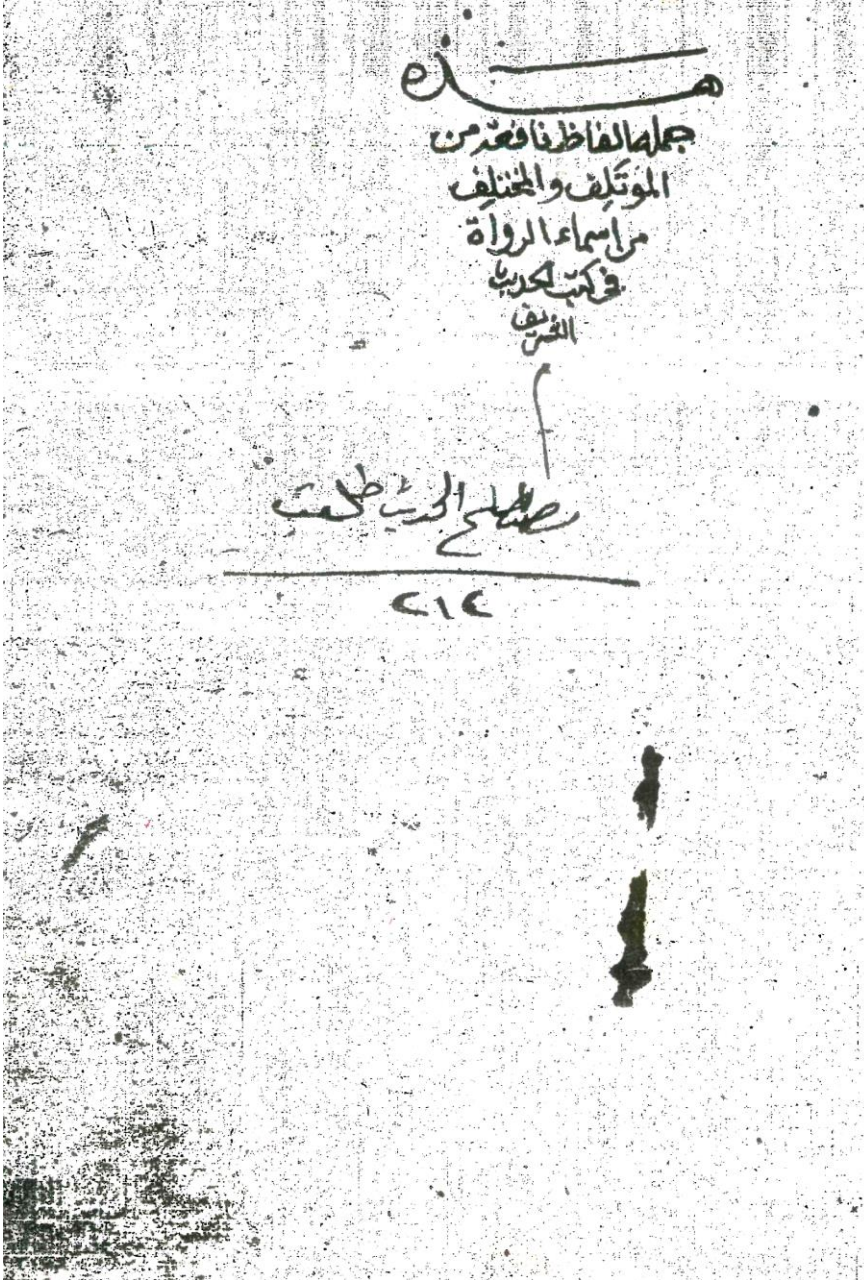 هذه
جملة الفاظ نافعة من
المؤتلف والمختلف
من اسماء الرواة
في كتب الحديث
الشريف
م
مصطلح الحديث طلعت
٢١٤